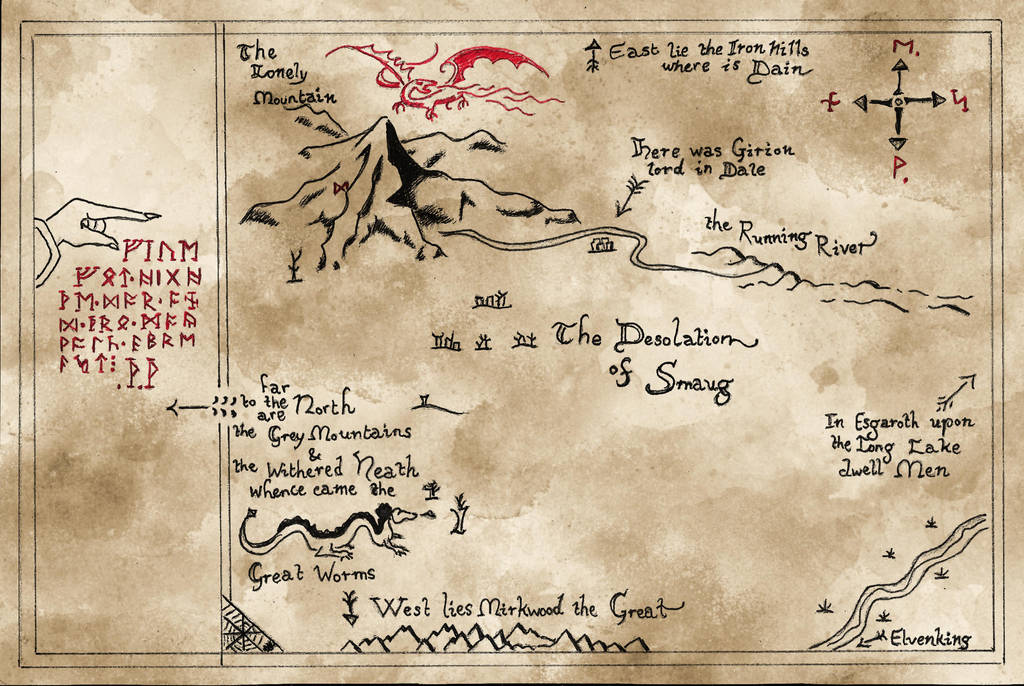 The
Lonely
Mountain
East lie the Iron Hills
where is Dain
ᛖ.
ᚾ
ᛋ
ᚹ.
Here was Girion
lord in Dale
ᛞ
the Running River
ᚠᛁᚢᛖ
ᚠᚩᛏ·ᚻᛁᚷᚻ
ᚦᛖ·ᛞᚩᚱ·ᚪᚾ
ᛞ·ᚦᚱᛟ·ᛗᚫᚣ
ᚹᚪᛚᚳ·ᚪᛒᚱᛖ
ᚪᛋᛏ⁝
.ᚦ.ᚦ
The Desolation
of Smaug
far
to the
are North
the Grey Mountains
&
the Withered Heath
whence came the
Great Worms
In Esgaroth upon
the Long Lake
dwell Men
West lies Mirkwood the Great
Elvenking